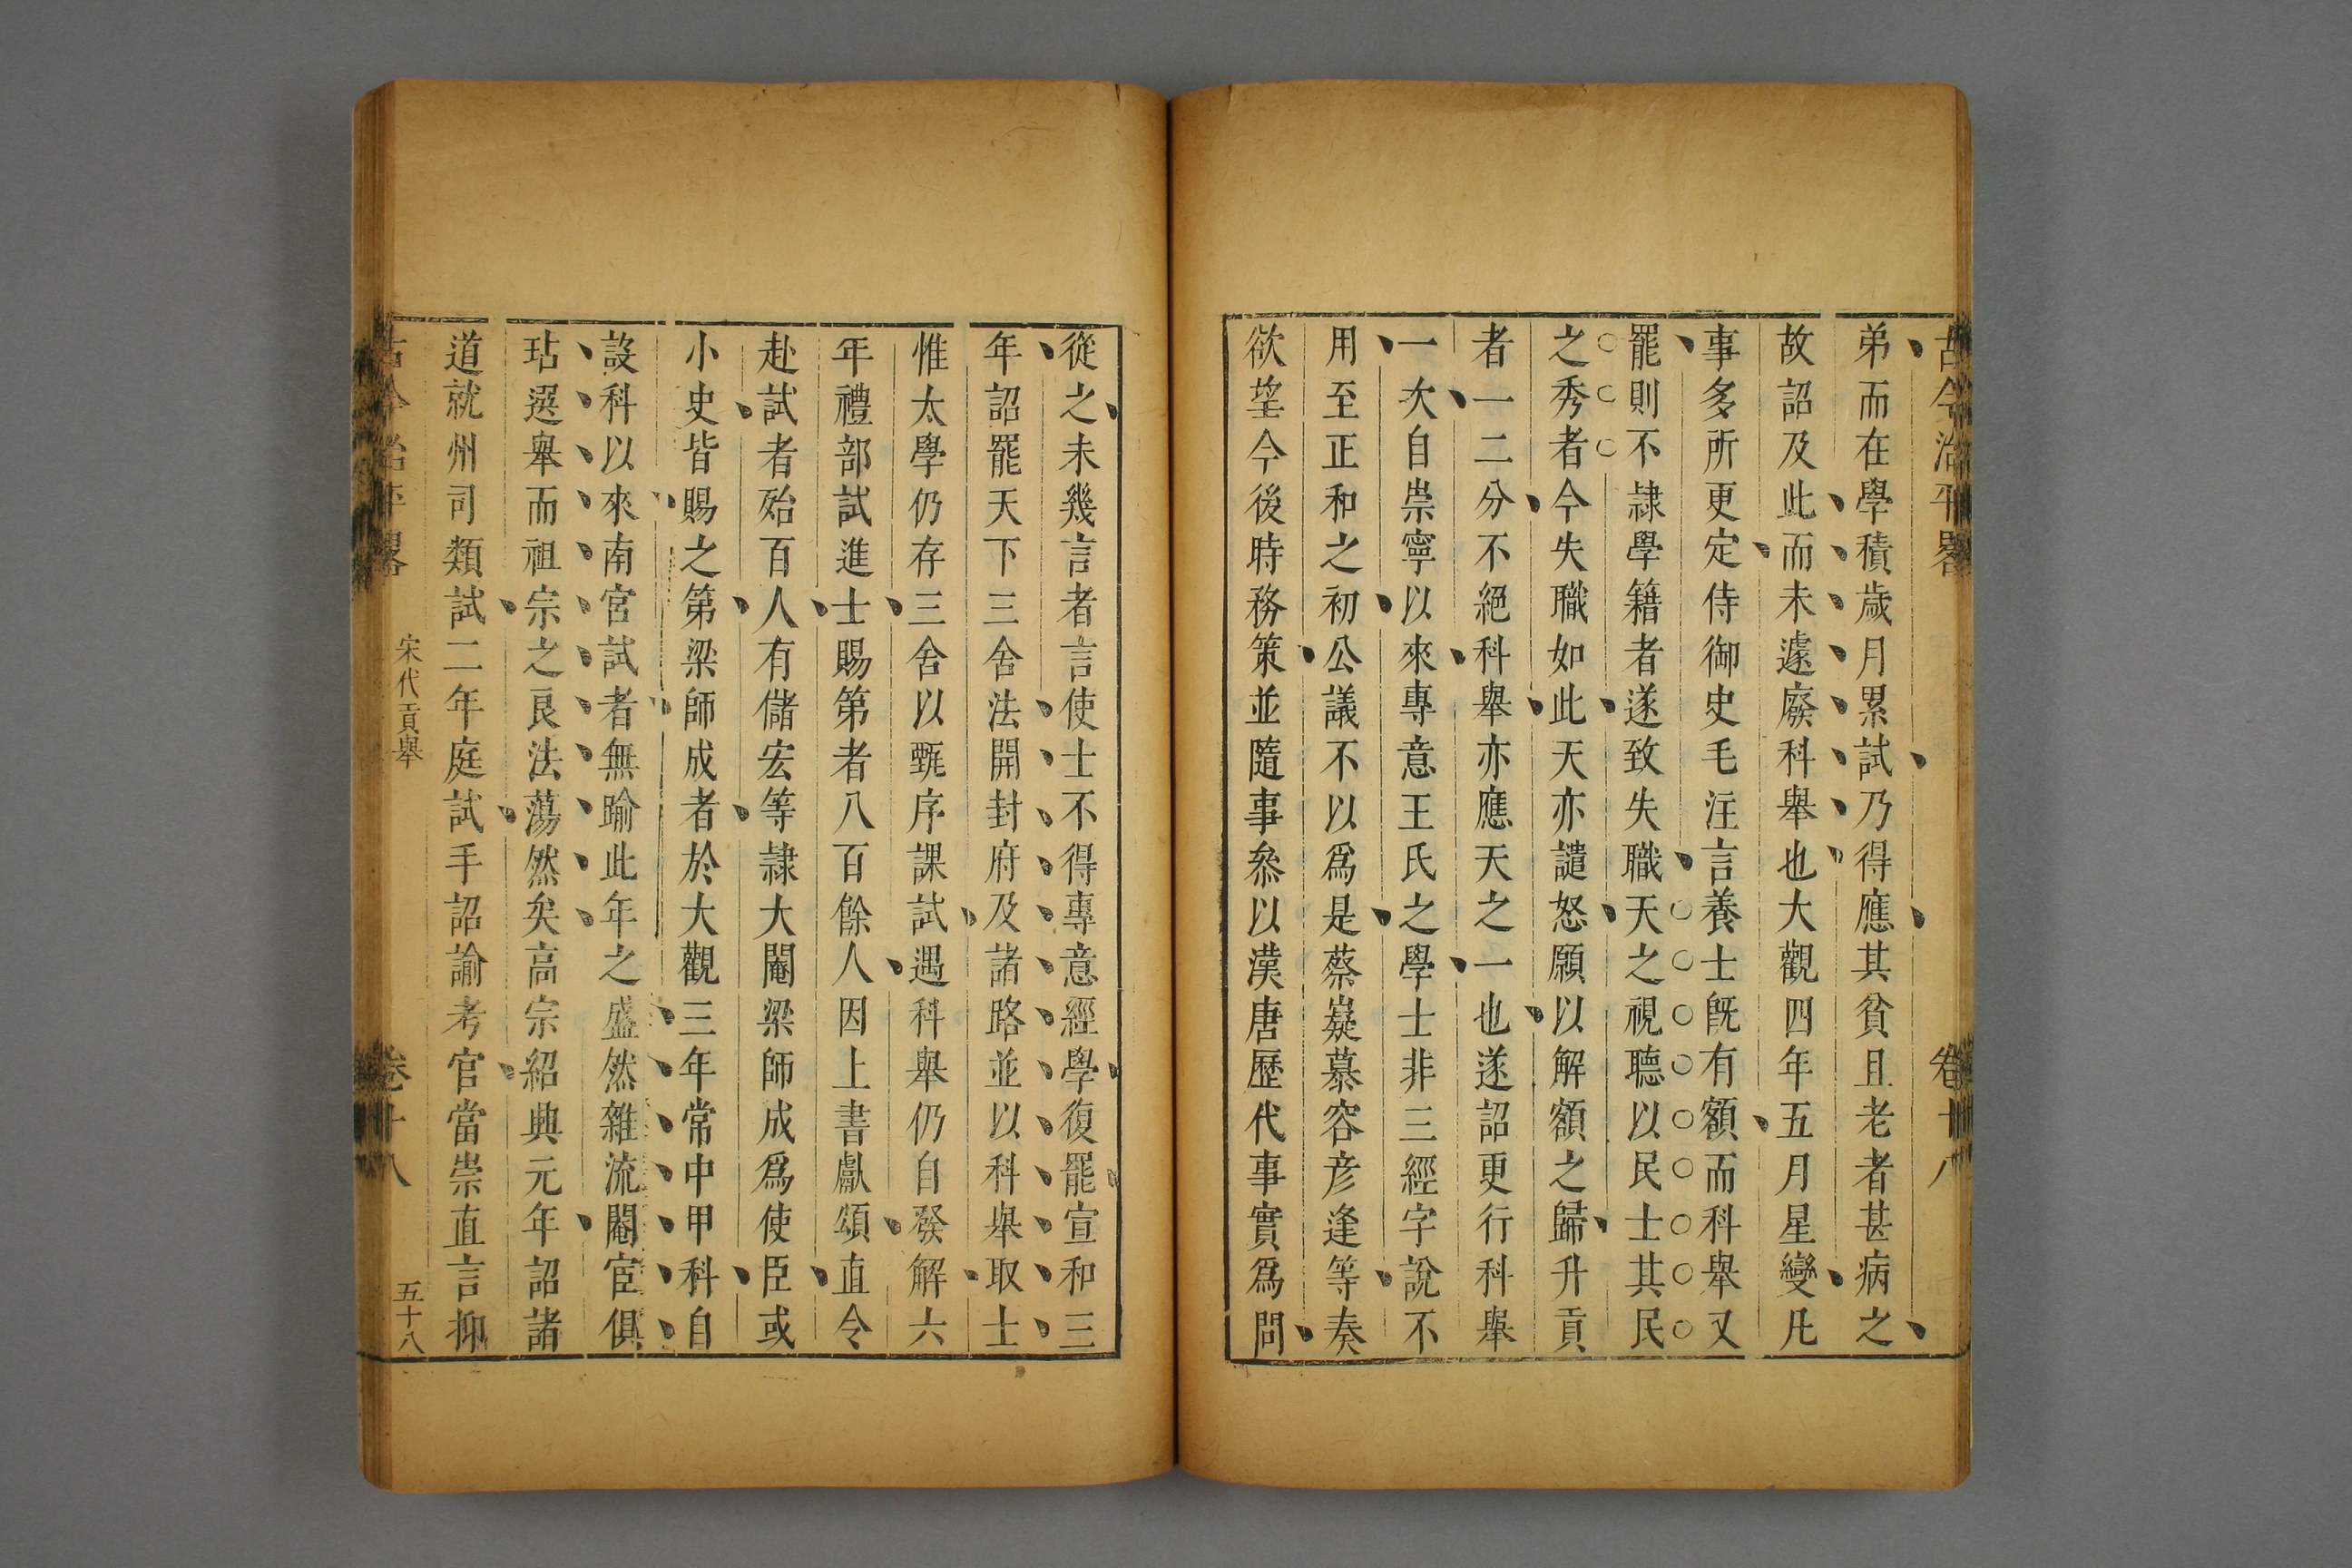 古今治平畧 卷十八
弟而在學積歲月累試乃得應其貧且老者甚病之
故詔及此而未遽廢科舉也大觀四年五月星變凡
事多所更定侍御史毛注言養士旣有額而科舉又
罷則不隷學籍者遂致失職天之視聽以民士其民
之秀者今失職如此天亦譴怒願以解額之歸升貢
者一二分不絕科舉亦應天之一也遂詔更行科舉
一次自崇寧以來專意王氏之學士非三經字說不
用至正和之初公議不以爲是蔡嶷慕容彦逢等奏
欲望今後時務策並隨事叅以漢唐歷代事實爲問
從之未幾言者言使士不得專意經學復罷宣和三
年詔罷天下三舍法開封府及諸路並以科舉取士
惟太學仍存三舍以甄序課試遇科舉仍自發解六
年禮部試進士賜第者八百餘人因上書獻頌直令
赴試者殆百人有儲宏等隷大閹梁師成爲使臣或
小史皆賜之第梁師成者於大觀三年常中甲科自
設科以來南宮試者無踰此年之盛然雜流閹宦俱
玷選舉而祖宗之良法蕩然矣高宗紹興元年詔諸
道就州司類試二年庭試手詔諭考官當崇直言抑
古今治平畧 宋代貢舉 卷十八 五十八